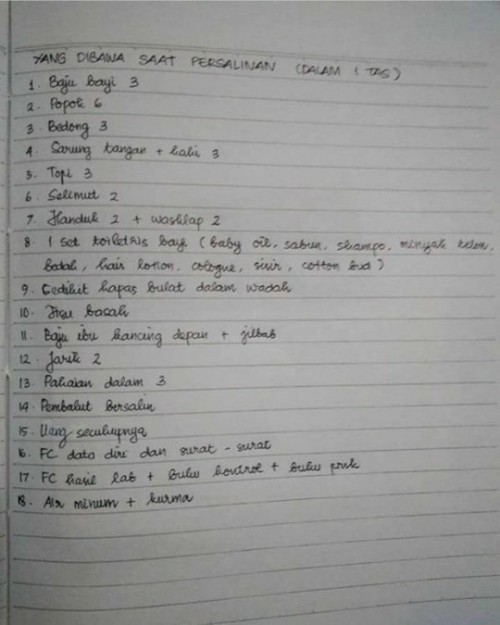 YANG DIBAWA SAAT PERSALINAN (DALAM 1 TAS)
1. Baju bayi 3
2. Popok 6
3. Bedong 3
4. Sarung tangan + kaki 3
5. Topi 3
6. Selimut 2
7. Handuk 2 + washlap 2
8. 1 set toiletris bayi (baby oil, sabun, shampo, minyak telon,
bedak, hair lotion, cologne, sisir, cotton bud)
9. Sedikit kapas bulat dalam wadah
10. Tisu basah
11. Baju ibu kancing depan + jilbab
12. Jarik 2
13. Pakaian dalam 3
14. Pembalut Bersalin
15. Uang secukupnya
16. FC data diri dan surat-surat
17. FC hasil lab + buku kontrol + buku pink
18. Air minum + kurma